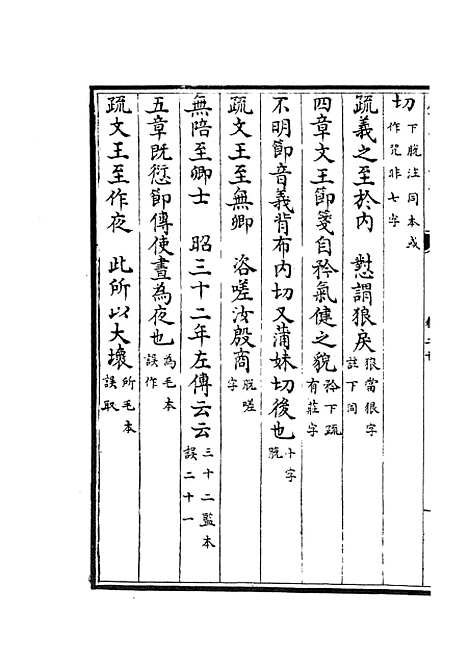 切下脫注同本或作咒非七字
疏義之至於內　懟謂狼戾狼當很字註下同
四章文王節箋自矜氣健之貌矜下疏有莊字
不明節音義背布內切又蒲妹切後也十字脫
疏文王至無卿　咨嗟汝殷商脫嗟字
無陪至卿士　昭三十二年左傳云云三十二監本誤二十一
五章既愆節傳使晝為夜也為毛本誤作
疏文王至作夜　此所以大壞所毛本誤取